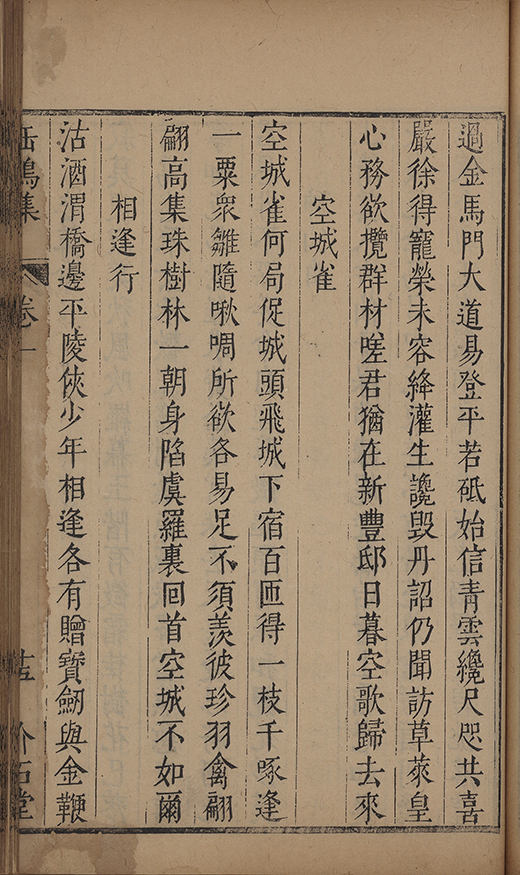 過金馬門大道易登平若砥始信青雲纔尺咫共喜
嚴徐得寵榮未容絳灌生讒毀丹詔仍聞訪草萊皇
心務欲攬群材嗟君猶在新豐邸日暮空歌歸去來
空城雀
空城雀何局促城頭飛城下宿百匝得一枝千啄逢
一粟衆雛隨啾啁所欲各易足不須羡彼珍羽禽翩
翩高集珠樹林一朝身陷虞羅裏回首空城不如爾
相逢行
沽酒渭橋邊平陵俠少年相逢各有贈寶劒與金鞭
缶鳴集 卷一